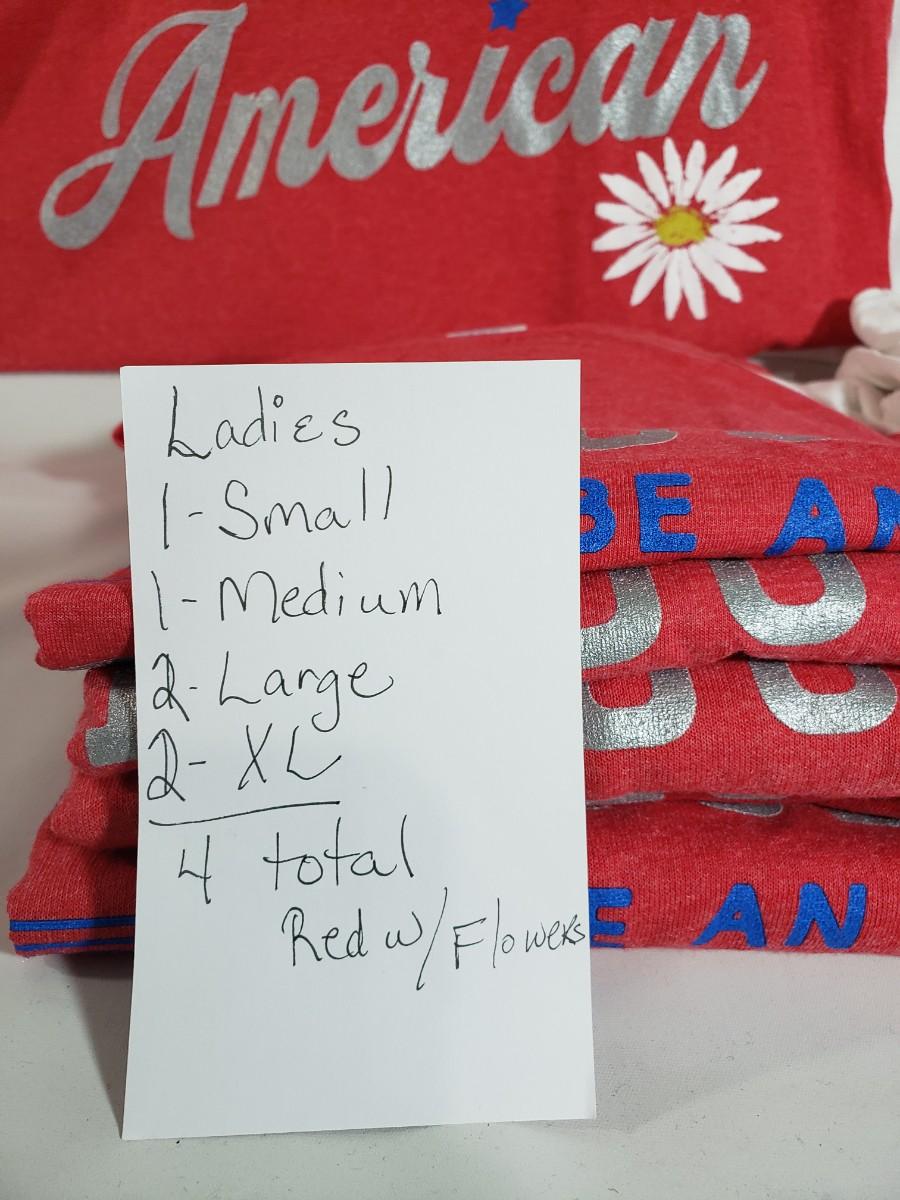 American
Ladies
1-Small
1-Medium
2-Large
2- XL
4 total
Red w/Flowers
BE AN
E AN